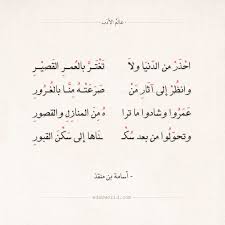 عالم الأدب
احذر من الدنيا ولا تغتر بالعمر القصير
وانظر إلى آثار من صرعته منا بالغرور
عمروا وشادوا ما ترا ه من المنازل والقصور
وتحولوا من بعد سكـ ـناها إلى سكن القبور
- أسامة بن منقذ -
adabworld.com